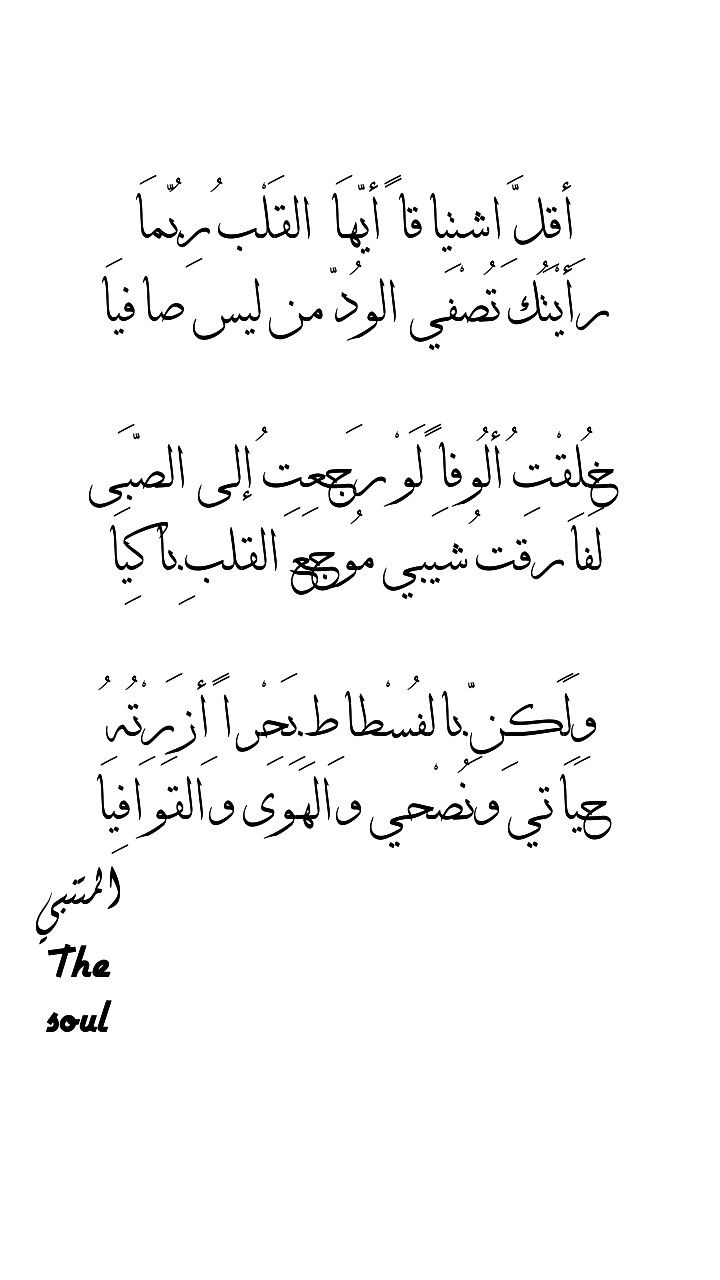 أقلَّ اشتياقاً أيّهاَ القَلْبُ رُبّماَ
رَأَيْتُكَ تُصْفَي الودُّ من ليسَ صافياَ
خُلِقْتِ ُألُوفاً لَوْ رَجَعِتِ ُإلى الصّبَى
لَفاَرقَت ُشَيبي مُوجع القلبِ باكِياَ
ولَكنِّ بالفُسْطاطِ بَحْراً أزَرْتُهُ
حَيَاَتي ونُصْحي والَهَوَى والقَوَافِياَ
المتنبي
The
soul